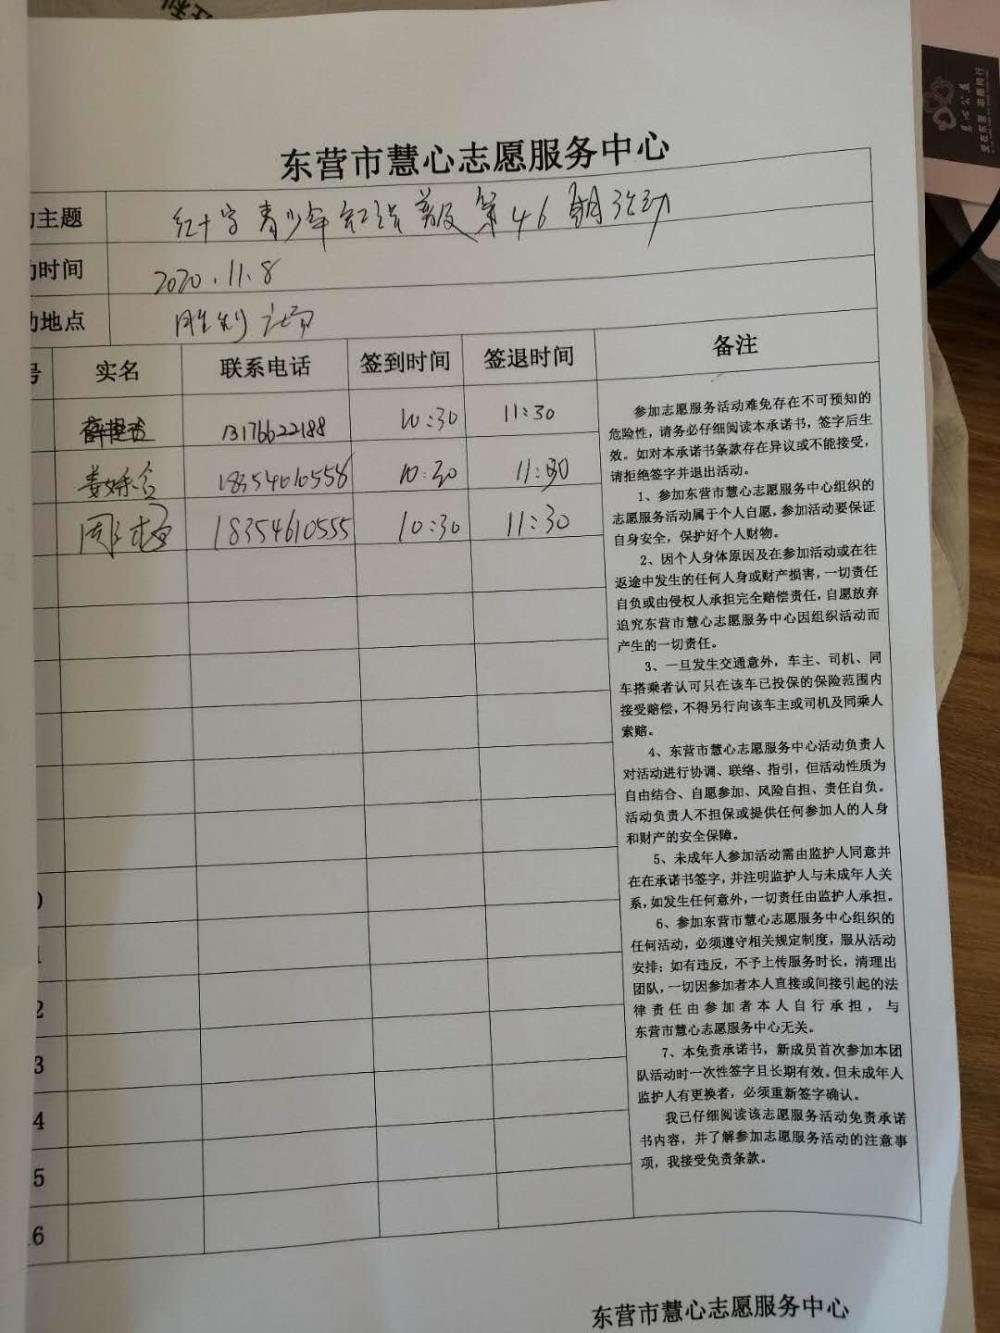 东营市慧心志愿服务中心
主题 红十字青少年 普及第46期活动
动时间 2020.11.8
动地点 胜利广场
号 实名 联系电话 签到时间 签退时间 备注
13176622188 10:30 11:30
姜 18354610558 10:30 11:30
周 18354610555 10:30 11:30
参加志愿服务活动难免存在不可预知的
危险性，请务必仔细阅读本承诺书，签字后生
效。如对本承诺书条款存在异议或不能接受，
请拒绝签字并退出活动。
1、参加东营市慧心志愿服务中心组织的
志愿服务活动属于个人自愿，参加活动要保证
自身安全，保护好个人财物。
2、因个人身体原因及在参加活动或在往
返途中发生的任何人身或财产损害，一切责任
自负或由侵权人承担完全赔偿责任，自愿放弃
追究东营市慧心志愿服务中心因组织活动而
产生的一切责任。
3、一旦发生交通意外，车主、司机、同
车搭乘者认可只在该车已投保的保险范围内
接受赔偿，不得另行向该车主或司机及同乘人
索赔。
4、东营市慧心志愿服务中心活动负责人
对活动进行协调、联络、指引，但活动性质为
自由结合、自愿参加、风险自担、责任自负。
活动负责人不担保或提供任何参加人的人身
和财产的安全保障。
5、未成年人参加活动需由监护人同意并
在在承诺书签字，并注明监护人与未成年人关
系，如发生任何意外，一切责任由监护人承担。
6、参加东营市慧心志愿服务中心组织的
任何活动，必须遵守相关规定制度，服从活动
安排；如有违反，不予上传服务时长，清理出
团队，一切因参加者本人直接或间接引起的法
律责任由参加者本人自行承担，与
东营市慧心志愿服务中心无关。
7、本免责承诺书，新成员首次参加本团
队活动时一次性签字且长期有效。但未成年人
监护人有更换者，必须重新签字确认。
我已仔细阅读该志愿服务活动免责承诺
书内容，并了解参加志愿服务活动的注意事
项，我接受免责条款。
0
1
2
3
4
5
6
东营市慧心志愿服务中心